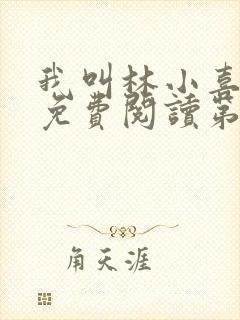 我叫林小喜
免費閱讀第
角天涯